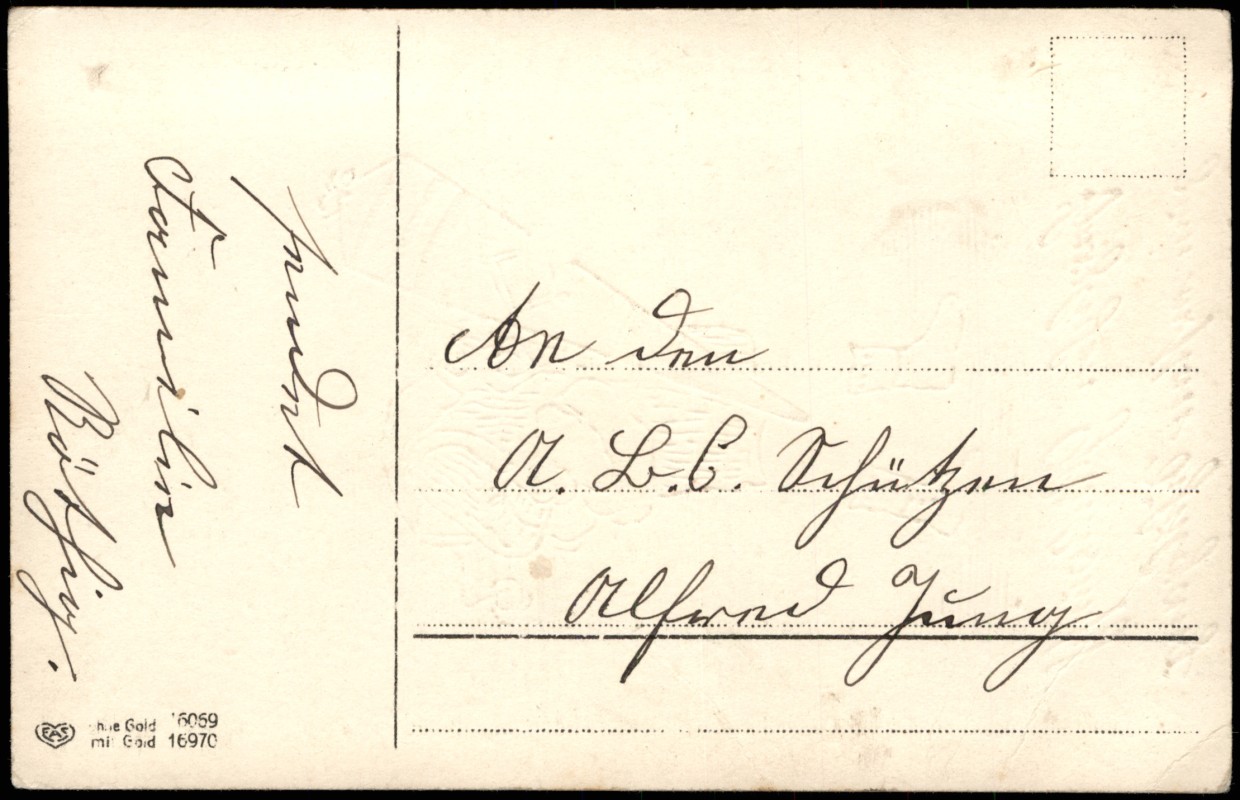 sendet
Familie
Böthig.
An den
A. B. C. Schützen
Alfred Jung
EAS
ohne Gold 16069
mit Gold 16970